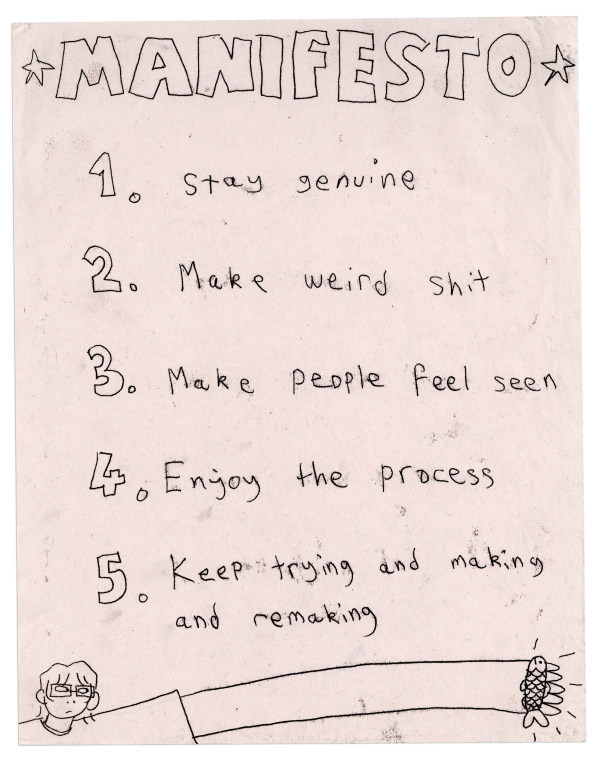 MANIFESTO
1. Stay genuine
2. Make weird shit
3. Make people feel seen
4. Enjoy the process
5. Keep trying and making
and remaking